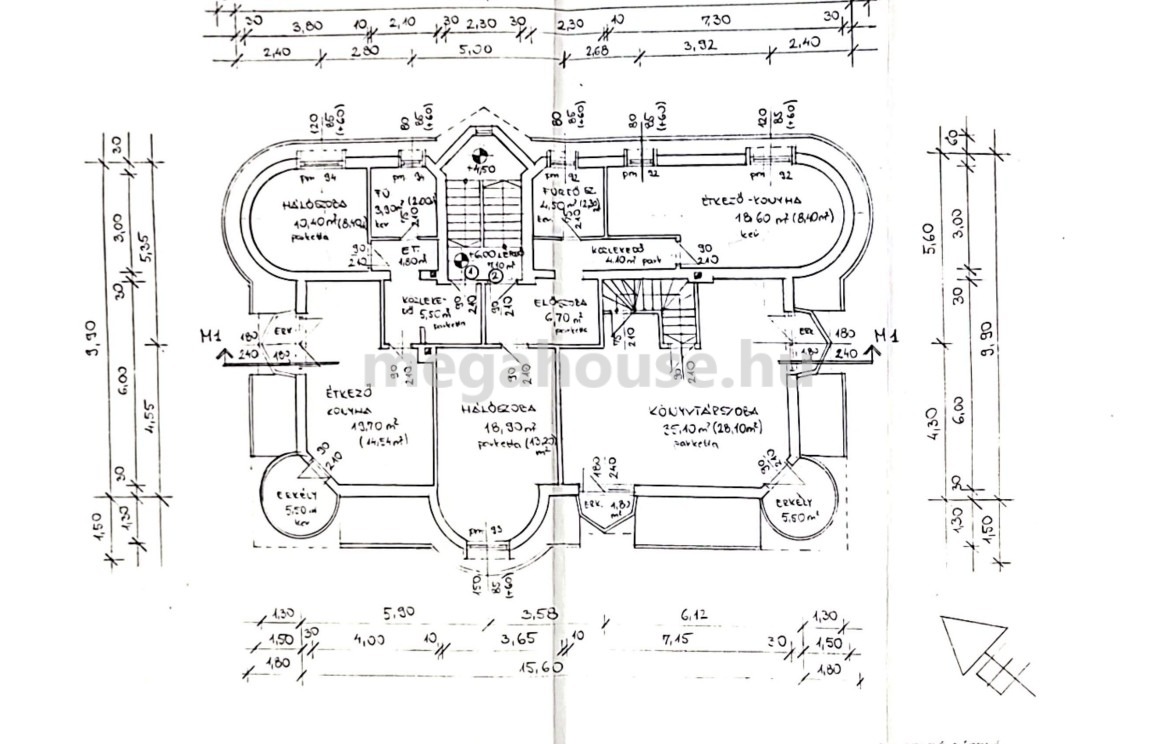 30 3,80 10 2,10 30 2,30 30 2,30 10 7,30 30
2,40 2,80 5,00 2,68 3,92 2,40
120 85 (+60)
80 85 (+60)
80 85 (+60)
80 85 (+60)
120 85 (+60)
+4,50
pm 94
pm 94
pm 92
pm 92
pm 92
HÁLÓSZOBA
10,40m² (8,40)
parketta
FÜ
3,90m² (2,00m²)
ker
75 210
FÜRDŐ SZ.
4,50m² (2,30m²)
ker
75 210
ÉTKEZŐ-KONYHA
18,60m² (8,40m²)
ker
ET.
1,80m²
90 210
+6,00
7,10m²
1
2
KÖZLEKEDŐ
4,10m² park
90 210
KÖZLEKE-
DŐ
5,50m²
parketta
90 210
90 210
ELŐSZOBA
6,70m²
parketta
75 210
ERK.
180 240
180
ERK
180 240
180
M1
M1
megahouse.hu
90 210
90 210
90 210
ÉTKEZŐ
KONYHA
19,70m²
(14,54m²)
HÁLÓSZOBA
18,90m²
parketta (13,20 m²)
KÖNYVTÁRSZOBA
35,10m² (28,10m²)
parketta
90 210
90 210
ERKÉLY
5,50m²
ker
180 240
ERK. 1,80 m²
ERKÉLY
5,50m²
pm 93
150 85 (+60)
30 3,00 30 6,00 30 1,30
5,35 4,55
9,90 1,50
60 3,00 30 6,00 30
5,60 4,30 1,30
9,90 1,50
1,30 5,90 3,58 6,12 1,30
1,50 30 4,00 10 3,65 10 7,15 30 1,50
1,80 15,60 1,80